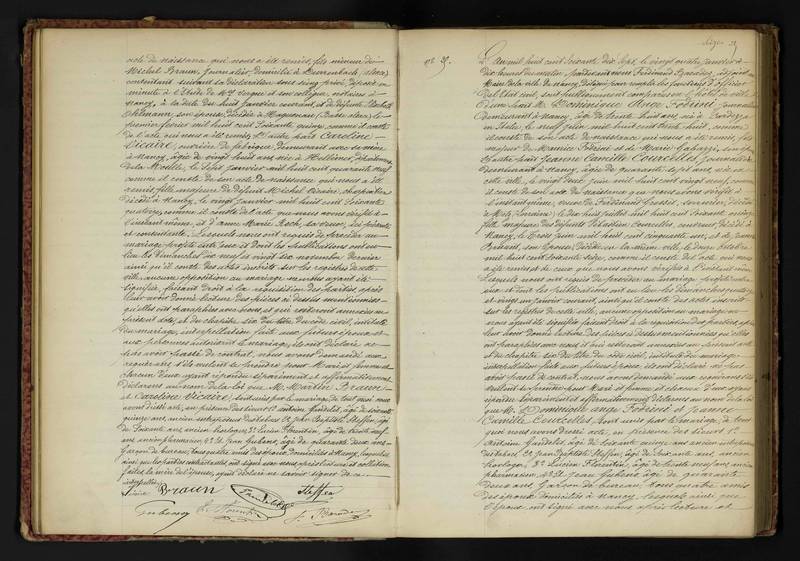 acte de naissance qui nous a été remis, fils mineur de
Michel Braun, journalier, domicilié à
consentant suivant sa déclaration sous seing privé, déposée en
minute à l'Etude de Me et son collègue, notaires à
Nancy, à la date du huit janvier courant, et de défunte
son épouse, décédée à Haguenau (Basse alsace), le
premier février mil huit cent soixante quinze, comme il conste
de l'acte qui nous a été remis, et d'autre part Caroline
Vicaire, ouvrière de fabrique, demeurant avec sa mère
à Nancy, âgée de vingt huit ans, née à département
de la Moselle, le sept janvier mil huit cent quarante neuf,
comme il conste de son acte de naissance qui nous a été
remis, fille majeure de défunt Michel Vicaire, charpentier,
décédé à Nancy, le vingt janvier mil huit cent soixante
quatorze, comme il conste de l'acte que nous avons vérifié à
l'instant même, et d'anne Marie Koch, sa veuve, ici présente
et consentante. Lesquels nous ont requis de procéder au
mariage projeté entre eux et dont les publications ont eu
lieu les Dimanches dix neuf et vingt six novembre dernier
ainsi qu'il conste des actes inscrits sur les registres de cette
ville, aucune opposition au mariage ne nous ayant été
signifiée, faisant droit à la réquisition des parties après
leur avoir donné lecture des pièces ci dessus mentionnées
qu'elles ont paraphées avec nous, et qui resteront annexées au
présent acte, et du chapitre six du titre du code civil, intitulé
du mariage, interpellation faite aux futurs époux, et
aux personnes autorisant le mariage, ils ont déclaré ne
pas avoir passé de contrat, nous avons demandé aux
requérants s'ils veulent se prendre pour Mari et femme et
chacun d'eux ayant répondu séparément et affirmativement
déclarons au nom de la loi que M. Martin Braun
et Caroline Vicaire, sont unis par le mariage, de tout quoi nous
avons dressé acte, en présence des sieurs 1° antoine Gaudelet, âgé de soixante
quinze ans, ancien entreposeur des tabacs, 2° Jean Baptiste Steffen, âgé
de soixante ans, ancien horloger, 3° Lucien Florentin, âgé de trente neuf
ans, ancien pharmacien, 4° et Jean Guberno, âgé de quarante deux ans
Garçon de bureau, tous quatre amis des époux, domiciliés à Nancy, lesquels
ainsi que les parties contractantes, ont signé avec nous après lecture et collation
faites, la mère de l'épouse, ayant déclaré ne savoir signer de ce
interpellée.
Vicaire Braun Gaudelet Steffen
Guberno L. Florentin
N° 25.
L'an mil huit cent soixante dix sept, le vingt quatre janvier à
dix heures du matin, pardevant nous Ferdinand adjoint au
Maire de la ville de Nancy, délégué pour remplir les fonctions d'officier
de l'Etat civil, sont publiquement comparus en l'hôtel de ville,
d'une part M. Dominique Ange Fobrini, journalier,
demeurant à Nancy, âgé de trente huit ans, né à
en Italie, le neuf juin mil huit cent trente huit, comme
il conste de son acte de naissance qui nous a été remis, fils
majeur de Maurice Fobrini et de Marie Gabazzi, son épouse
Et d'autre part Jeanne Camille Courcelles, journalière
demeurant à Nancy, âgée de quarante sept ans, née en
cette ville, le vingt deux juin mil huit cent vingt neuf, comme
il conste de son acte de naissance que nous avons vérifié à
l'instant même, veuve de Ferdinand Gressit, serrurier, décédé
à Metz (Lorraine) le dix huit juillet mil huit cent soixante onze,
fille majeure des défunts Sébastien Courcelles, couvreur, décédé à
Nancy, le treize juin mil huit cent cinquante un, et de Jeanne
son épouse, décédée en la même ville, le douze octobre
mil huit cent soixante seize, comme il conste de l'acte qui nous
a été remis et de ceux que nous avons vérifiés à l'instant même
Lesquels nous ont requis de procéder au mariage projeté entre
eux et dont les publications ont eu lieu les Dimanches quatorze
et vingt un janvier courant, ainsi qu'il conste des actes inscrits
sur les registres de cette ville, aucune opposition au mariage ne
nous ayant été signifiée, faisant droit à la réquisition des parties, après
leur avoir donné lecture des pièces ci dessus mentionnées qu'elles
ont paraphées avec nous, et qui resteront annexées au présent acte
et du chapitre six du titre du code civil, intitulé du mariage,
interpellation faite aux futurs époux, ils ont déclaré ne pas
avoir passé de contrat, nous avons demandé aux requérants s'ils
veulent se prendre pour Mari et femme et chacun d'eux ayant
répondu séparément et affirmativement déclarons au nom de la loi
que M. Dominique ange Fobrini et Jeanne
Camille Courcelles, sont unis par le mariage, de tout
quoi nous avons dressé acte, en présence des sieurs 1°
Antoine Gaudelet, âgé de soixante quinze ans, ancien entreposeur
des tabacs, 2° Jean Baptiste Steffen, âgé de soixante ans, ancien
horloger, 3° Lucien Florentin, âgé de trente neuf ans, ancien
pharmacien, 4° et Jean Guberno, âgé de quarante
deux ans, Garçon de bureau, tous quatre amis
des époux, domiciliés à Nancy, lesquels ainsi que
l'époux, ont signé avec nous après lecture et